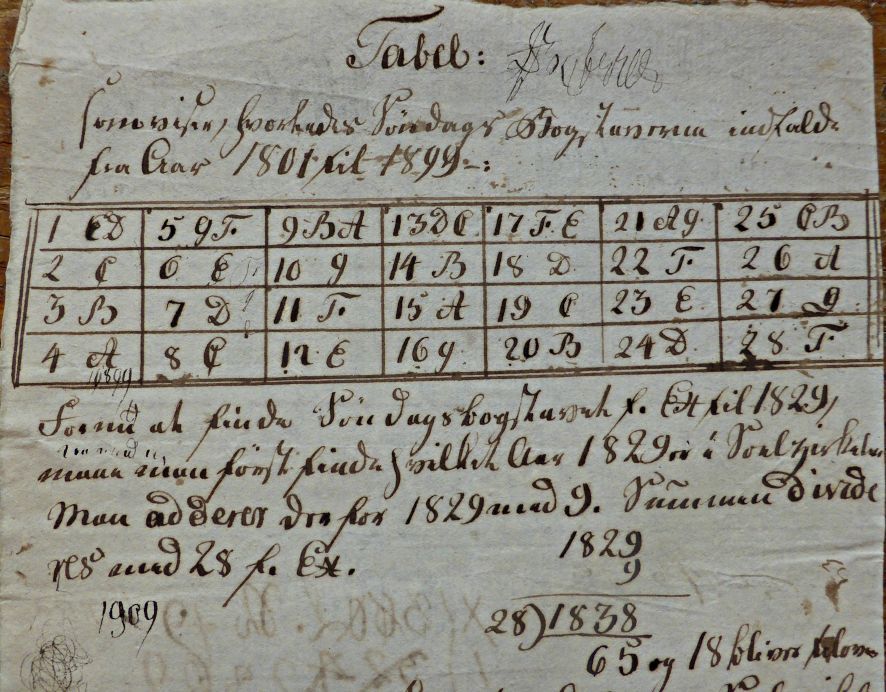 Tabel:
som viser, hvorledes Söndags Bogstaverne indfalde
fra Aar 1801 til 1899.
1 ED 5 GF. 9 BA 13 DC 17 F. E 21 AG. 25 CB
2 C 6 E 10 G 14 B 18 D. 22 F. 26 A
3 B 7 D 11 F. 15 A 19 C 23 E. 27 G
4 A 8 C 12 E 16 G 20 B 24 D. 28 F.
1899
For at finde Söndagsbogstavet f. Ex til 1829,
maae man först finde hvilket Aar 1829 er i Soelzirkelen
Man adderer derfor 1829 med 9. Summen divide
res med 28 f. Ex.
1829
9
1909
28) 1838
65 og 18 bliver tilovers